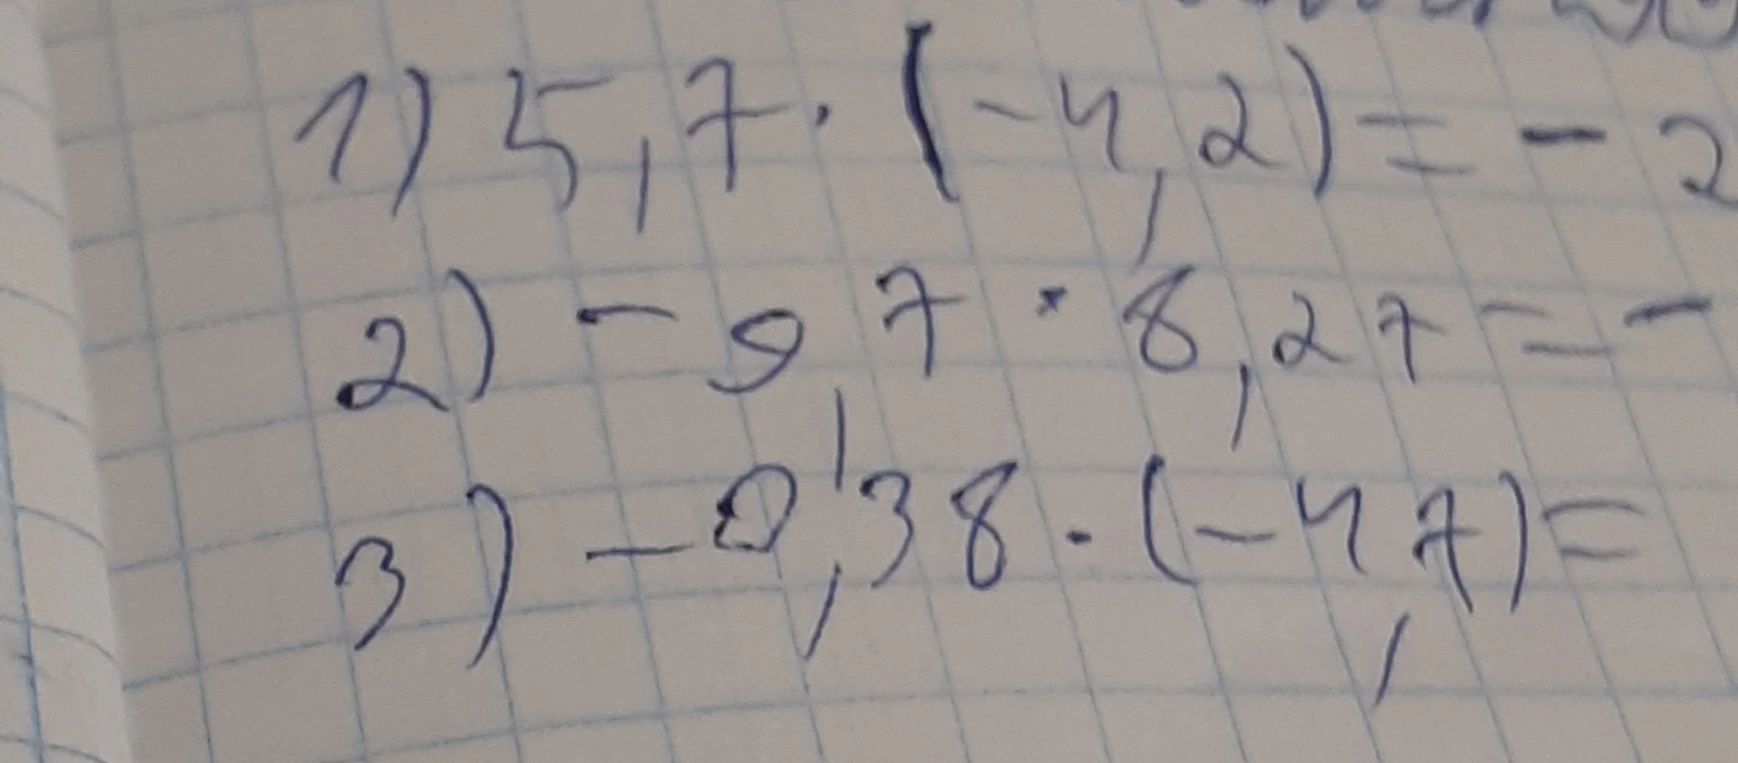 1) 5,7 · (-4,2) = - 2
2) - 9,7 · 8,27 = -
3) - 0,38 · (-4,7) =